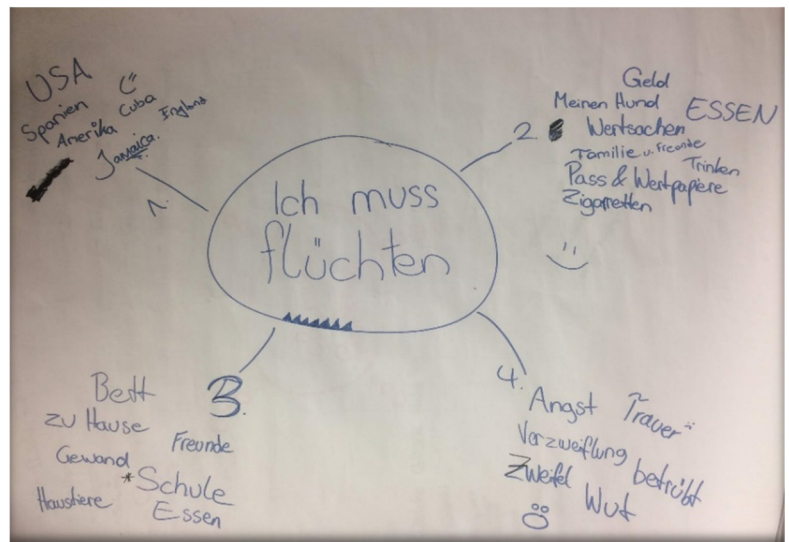 Ich muss
flüchten
1.
USA
Spanien
Cuba
England
Amerika
Jamaica.
2.
Geld
Meinen Hund
ESSEN
Wertsachen
Familie u. Freunde
Trinken
Pass & Wertpapiere
Zigarretten
3.
Bett
zu Hause
Freunde
Gewand
*Schule
Haustiere
Essen
4.
Angst
Trauer
Verzweiflung
Zweifel
betrübt
Wut